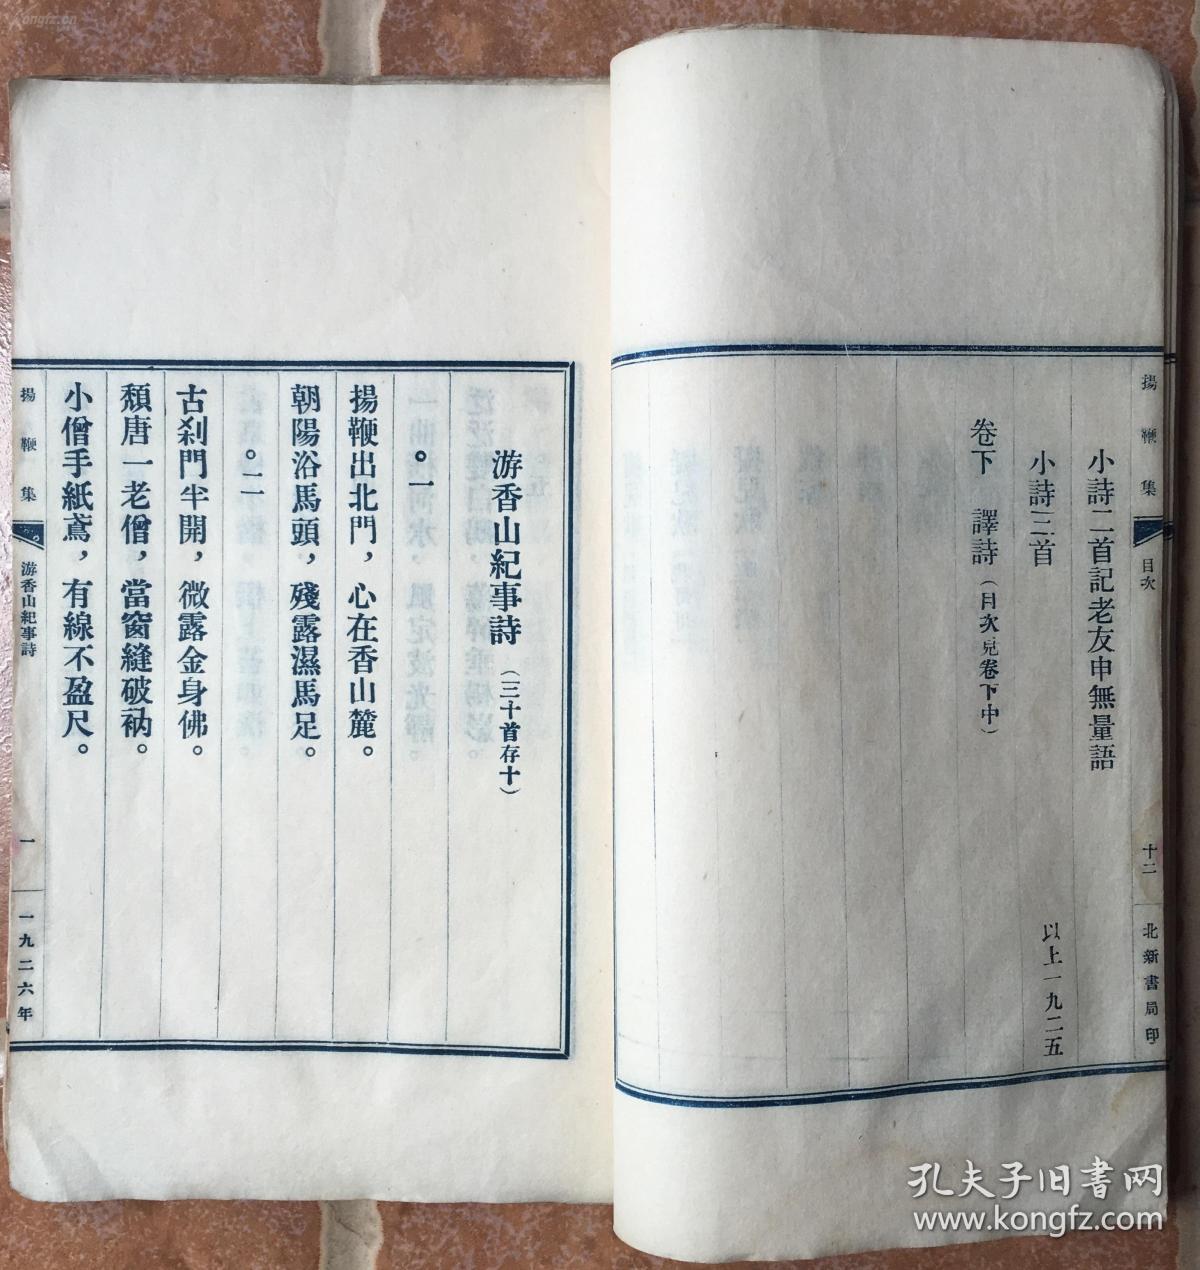 揚鞭集
目次
十二
北新書局印
小詩二首記老友申無量語
小詩三首
以上一九二五
卷下 譯詩(目次見卷下中)
游香山紀事詩(三十首存十)
一。
揚鞭出北門，心在香山麓。
朝陽浴馬頭，殘露濕馬足。
二。
古刹門半開，微露金身佛。
頹唐一老僧，當窗縫破衲。
小僧手紙鳶，有線不盈尺。
揚鞭集
游香山紀事詩
一
一九二六年
孔夫子旧书网
www.kongfz.com
kongfz.cn